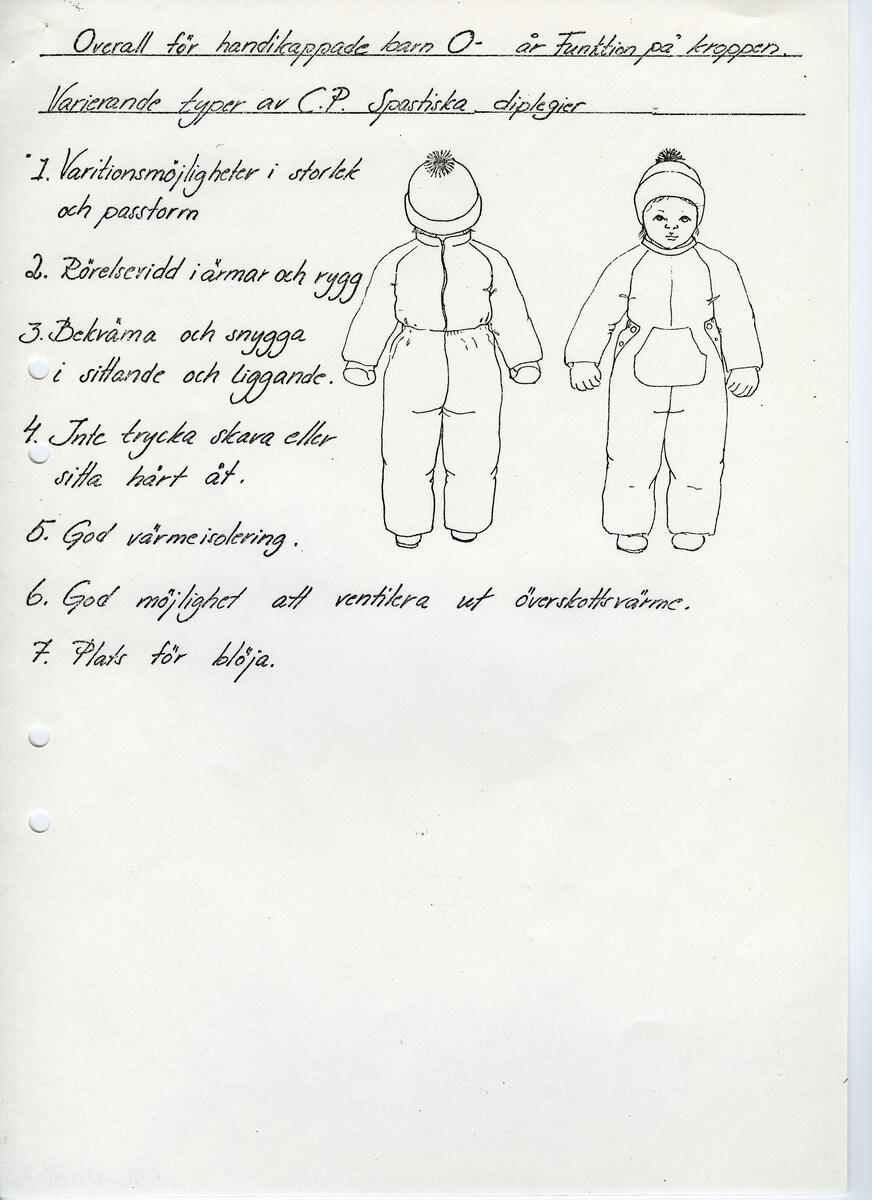 Overall för handikappade barn 0- år Funktion på kroppen.
Varierande typer av C.P. Spastiska diplegier
1. Varitionsmöjligheter i storlek
och passform
2. Rörelsevidd i ärmar och rygg
3. Bekväma och snygga
i sittande och liggande.
4. Inte trycka skava eller
sitta hårt åt.
5. God värmeisolering.
6. God möjlighet att ventilera ut överskottsvärme.
7. Plats för blöja.